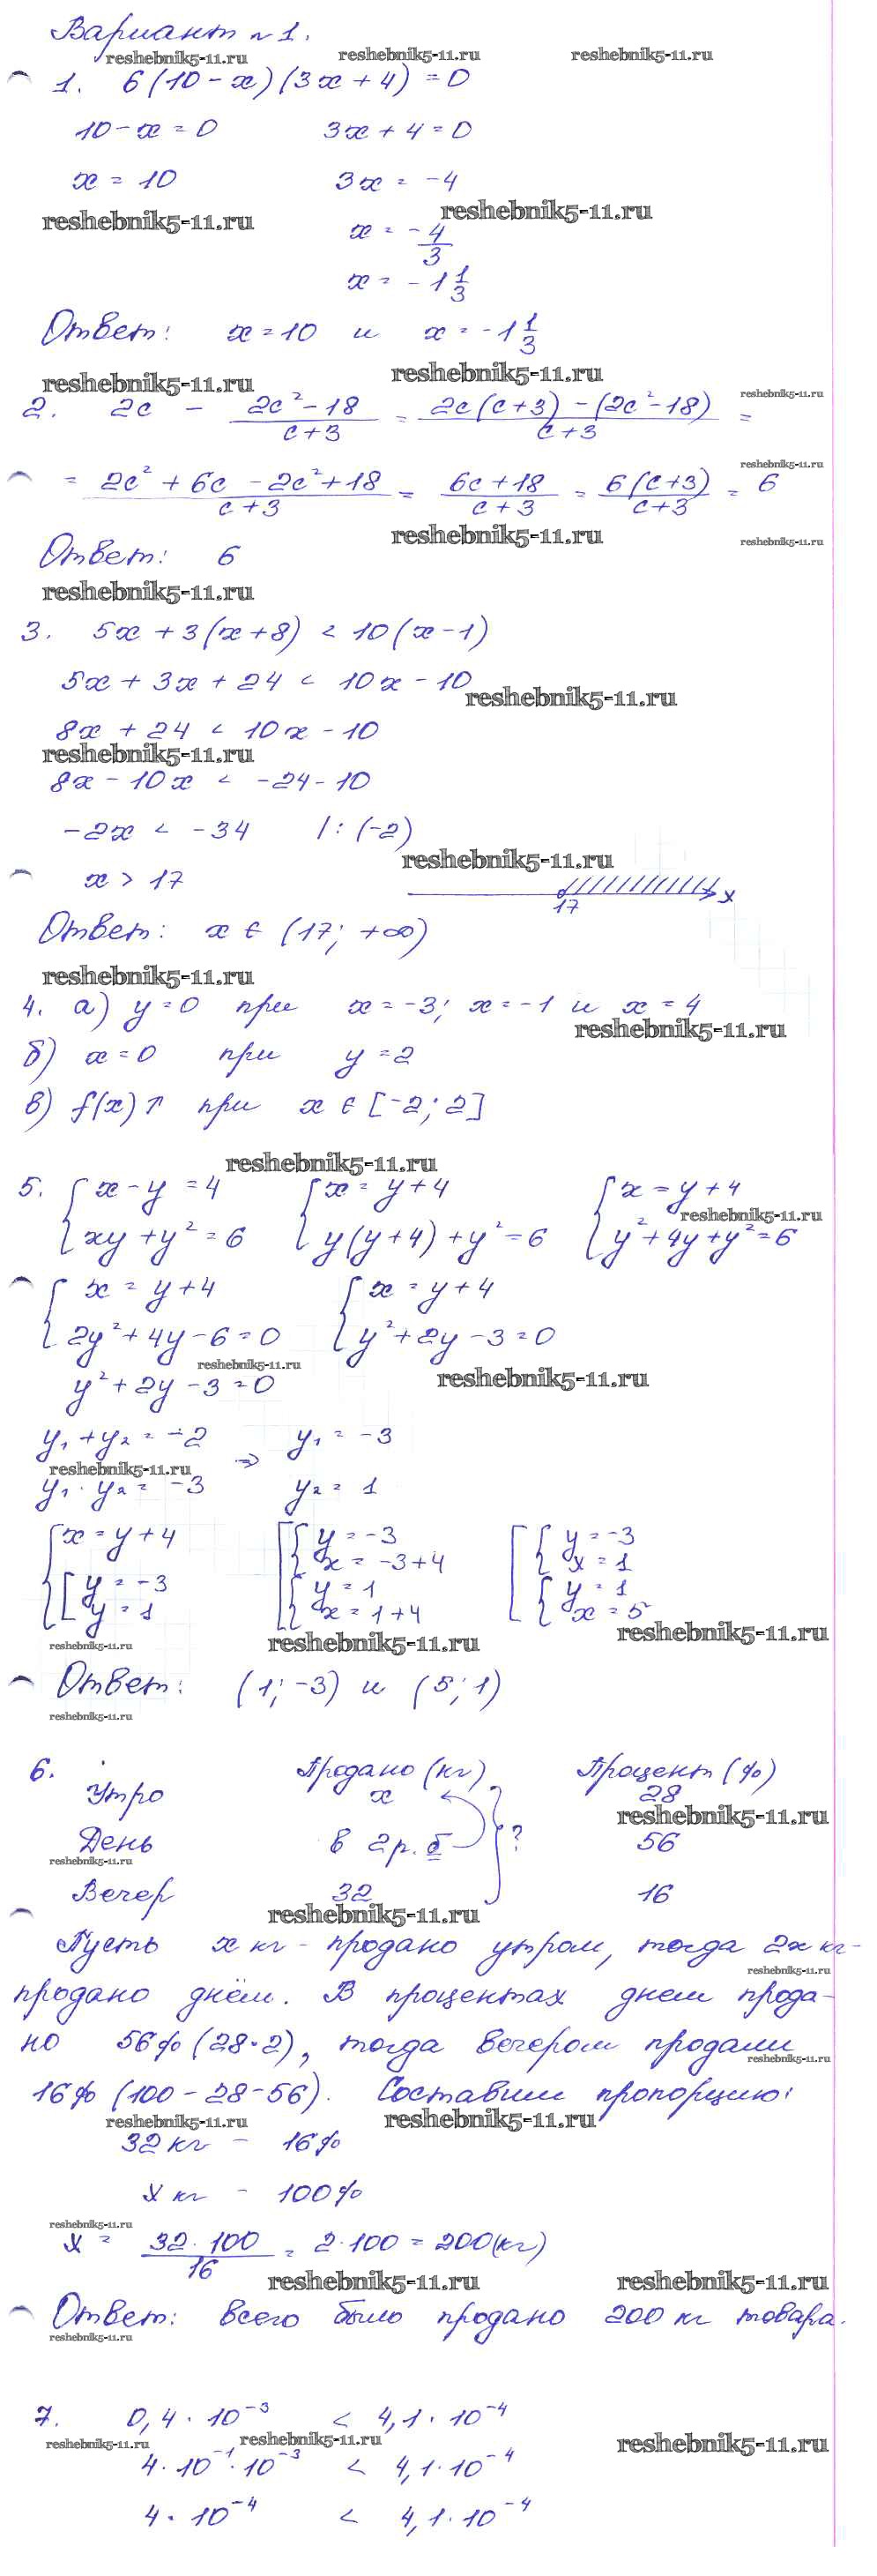 Вариант №1.
reshebnik5-11.ru reshebnik5-11.ru reshebnik5-11.ru
1. 6(10-x)(3x+4)=0
10-x=0 3x+4=0
x=10 3x=-4
reshebnik5-11.ru reshebnik5-11.ru
x=-4/3
x=-1 1/3
Ответ: x=10 и x=-1 1/3
reshebnik5-11.ru reshebnik5-11.ru reshebnik5-11.ru
2. 2c - (2c²-18)/(c+3) = (2c(c+3)-(2c²-18))/(c+3) =
reshebnik5-11.ru
= (2c²+6c-2c²+18)/(c+3) = (6c+18)/(c+3) = 6(c+3)/(c+3) = 6
reshebnik5-11.ru reshebnik5-11.ru
Ответ: 6
reshebnik5-11.ru
3. 5x+3(x+8) < 10(x-1)
5x+3x+24 < 10x-10
reshebnik5-11.ru
8x+24 < 10x-10
reshebnik5-11.ru
8x-10x < -24-10
-2x < -34 |:(-2)
reshebnik5-11.ru
x > 17
17 x
Ответ: x ∈ (17; +∞)
reshebnik5-11.ru
4. а) y=0 при x=-3; x=-1 и x=4
reshebnik5-11.ru
б) x=0 при y=2
в) f(x)↑ при x ∈ [-2; 2]
reshebnik5-11.ru
5. { x-y=4 { x=y+4 { x=y+4
reshebnik5-11.ru
xy+y²=6 y(y+4)+y²=6 y²+4y+y²=6
{ x=y+4 { x=y+4
2y²+4y-6=0 y²+2y-3=0
reshebnik5-11.ru
y²+2y-3=0
reshebnik5-11.ru
y₁+y₂=-2 ⇒ y₁=-3
reshebnik5-11.ru
y₁·y₂=-3 y₂=1
{ x=y+4 [ { y=-3 [ { y=-3
x=-3+4 x=1
[ y=-3 { y=1 { y=1
y=1 x=1+4 x=5
reshebnik5-11.ru reshebnik5-11.ru reshebnik5-11.ru
Ответ: (1; -3) и (5; 1)
reshebnik5-11.ru
6. Продано (кг) Процент (%)
Утро x 28
reshebnik5-11.ru
День в 2 р. б } ? 56
reshebnik5-11.ru
Вечер 32 16
reshebnik5-11.ru
Пусть x кг - продано утром, тогда 2x кг-
reshebnik5-11.ru
продано днём. В процентах днем прода-
но 56% (28·2), тогда вечером продали
reshebnik5-11.ru
16% (100-28-56). Составим пропорцию:
reshebnik5-11.ru reshebnik5-11.ru
32 кг - 16%
x кг - 100%
reshebnik5-11.ru
x = 32·100/16 = 2·100 = 200(кг)
reshebnik5-11.ru reshebnik5-11.ru
Ответ: всего было продано 200 кг товара.
reshebnik5-11.ru
7. 0,4·10⁻³ < 4,1·10⁻⁴
reshebnik5-11.ru reshebnik5-11.ru reshebnik5-11.ru
4·10⁻¹·10⁻³ < 4,1·10⁻⁴
4·10⁻⁴ < 4,1·10⁻⁴